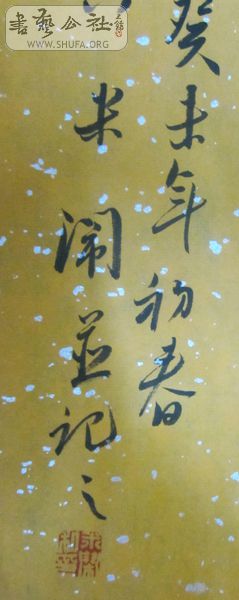 書藝公社
WWW.SHUFA.ORG
癸未年初春
米闹並记之